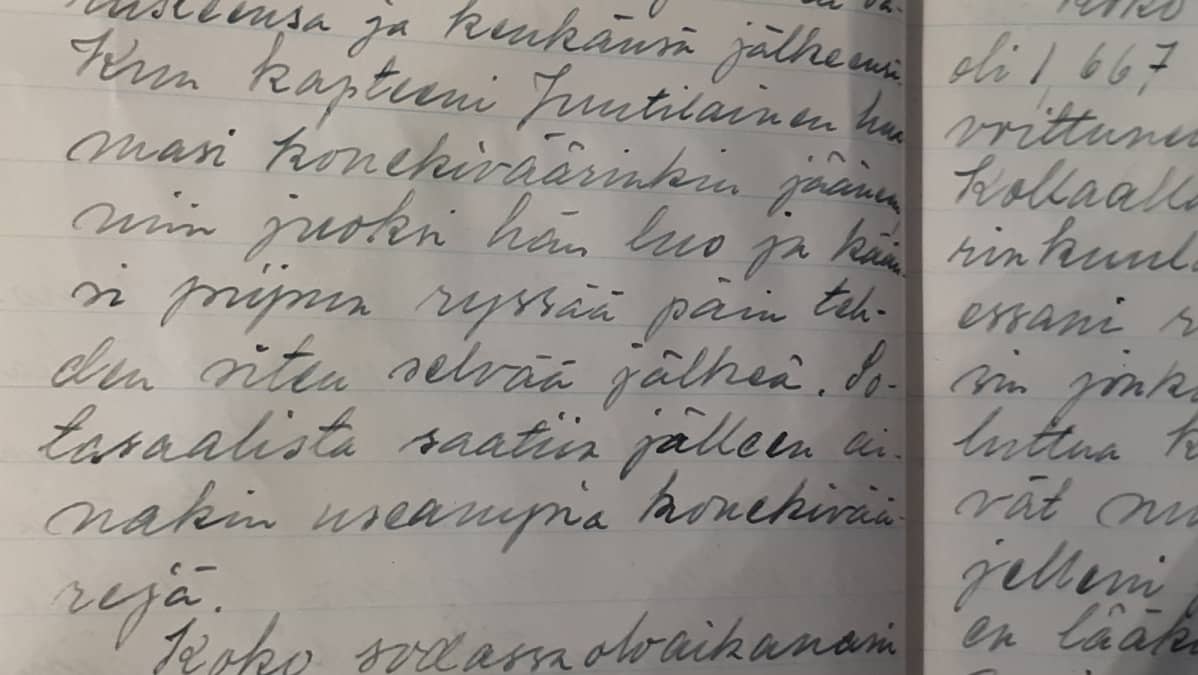 ja kenkänsä jälkeensä.
Kun kapteeni Juutilainen huo-
masi konekiväärinkin jääneen,
niin juoksi hän luo ja kään-
si piipun ryssää päin teh-
den siten selvää jälkeä. So-
tasaalista saatiin jälleen ai-
nakin useampia konekivää-
rejä.
Koko sodassa oloaikanani
oli 1,667
Kollaall
rinkuul
essani r
sin jonk
luttua k
vät mu
jelleni
en lääk